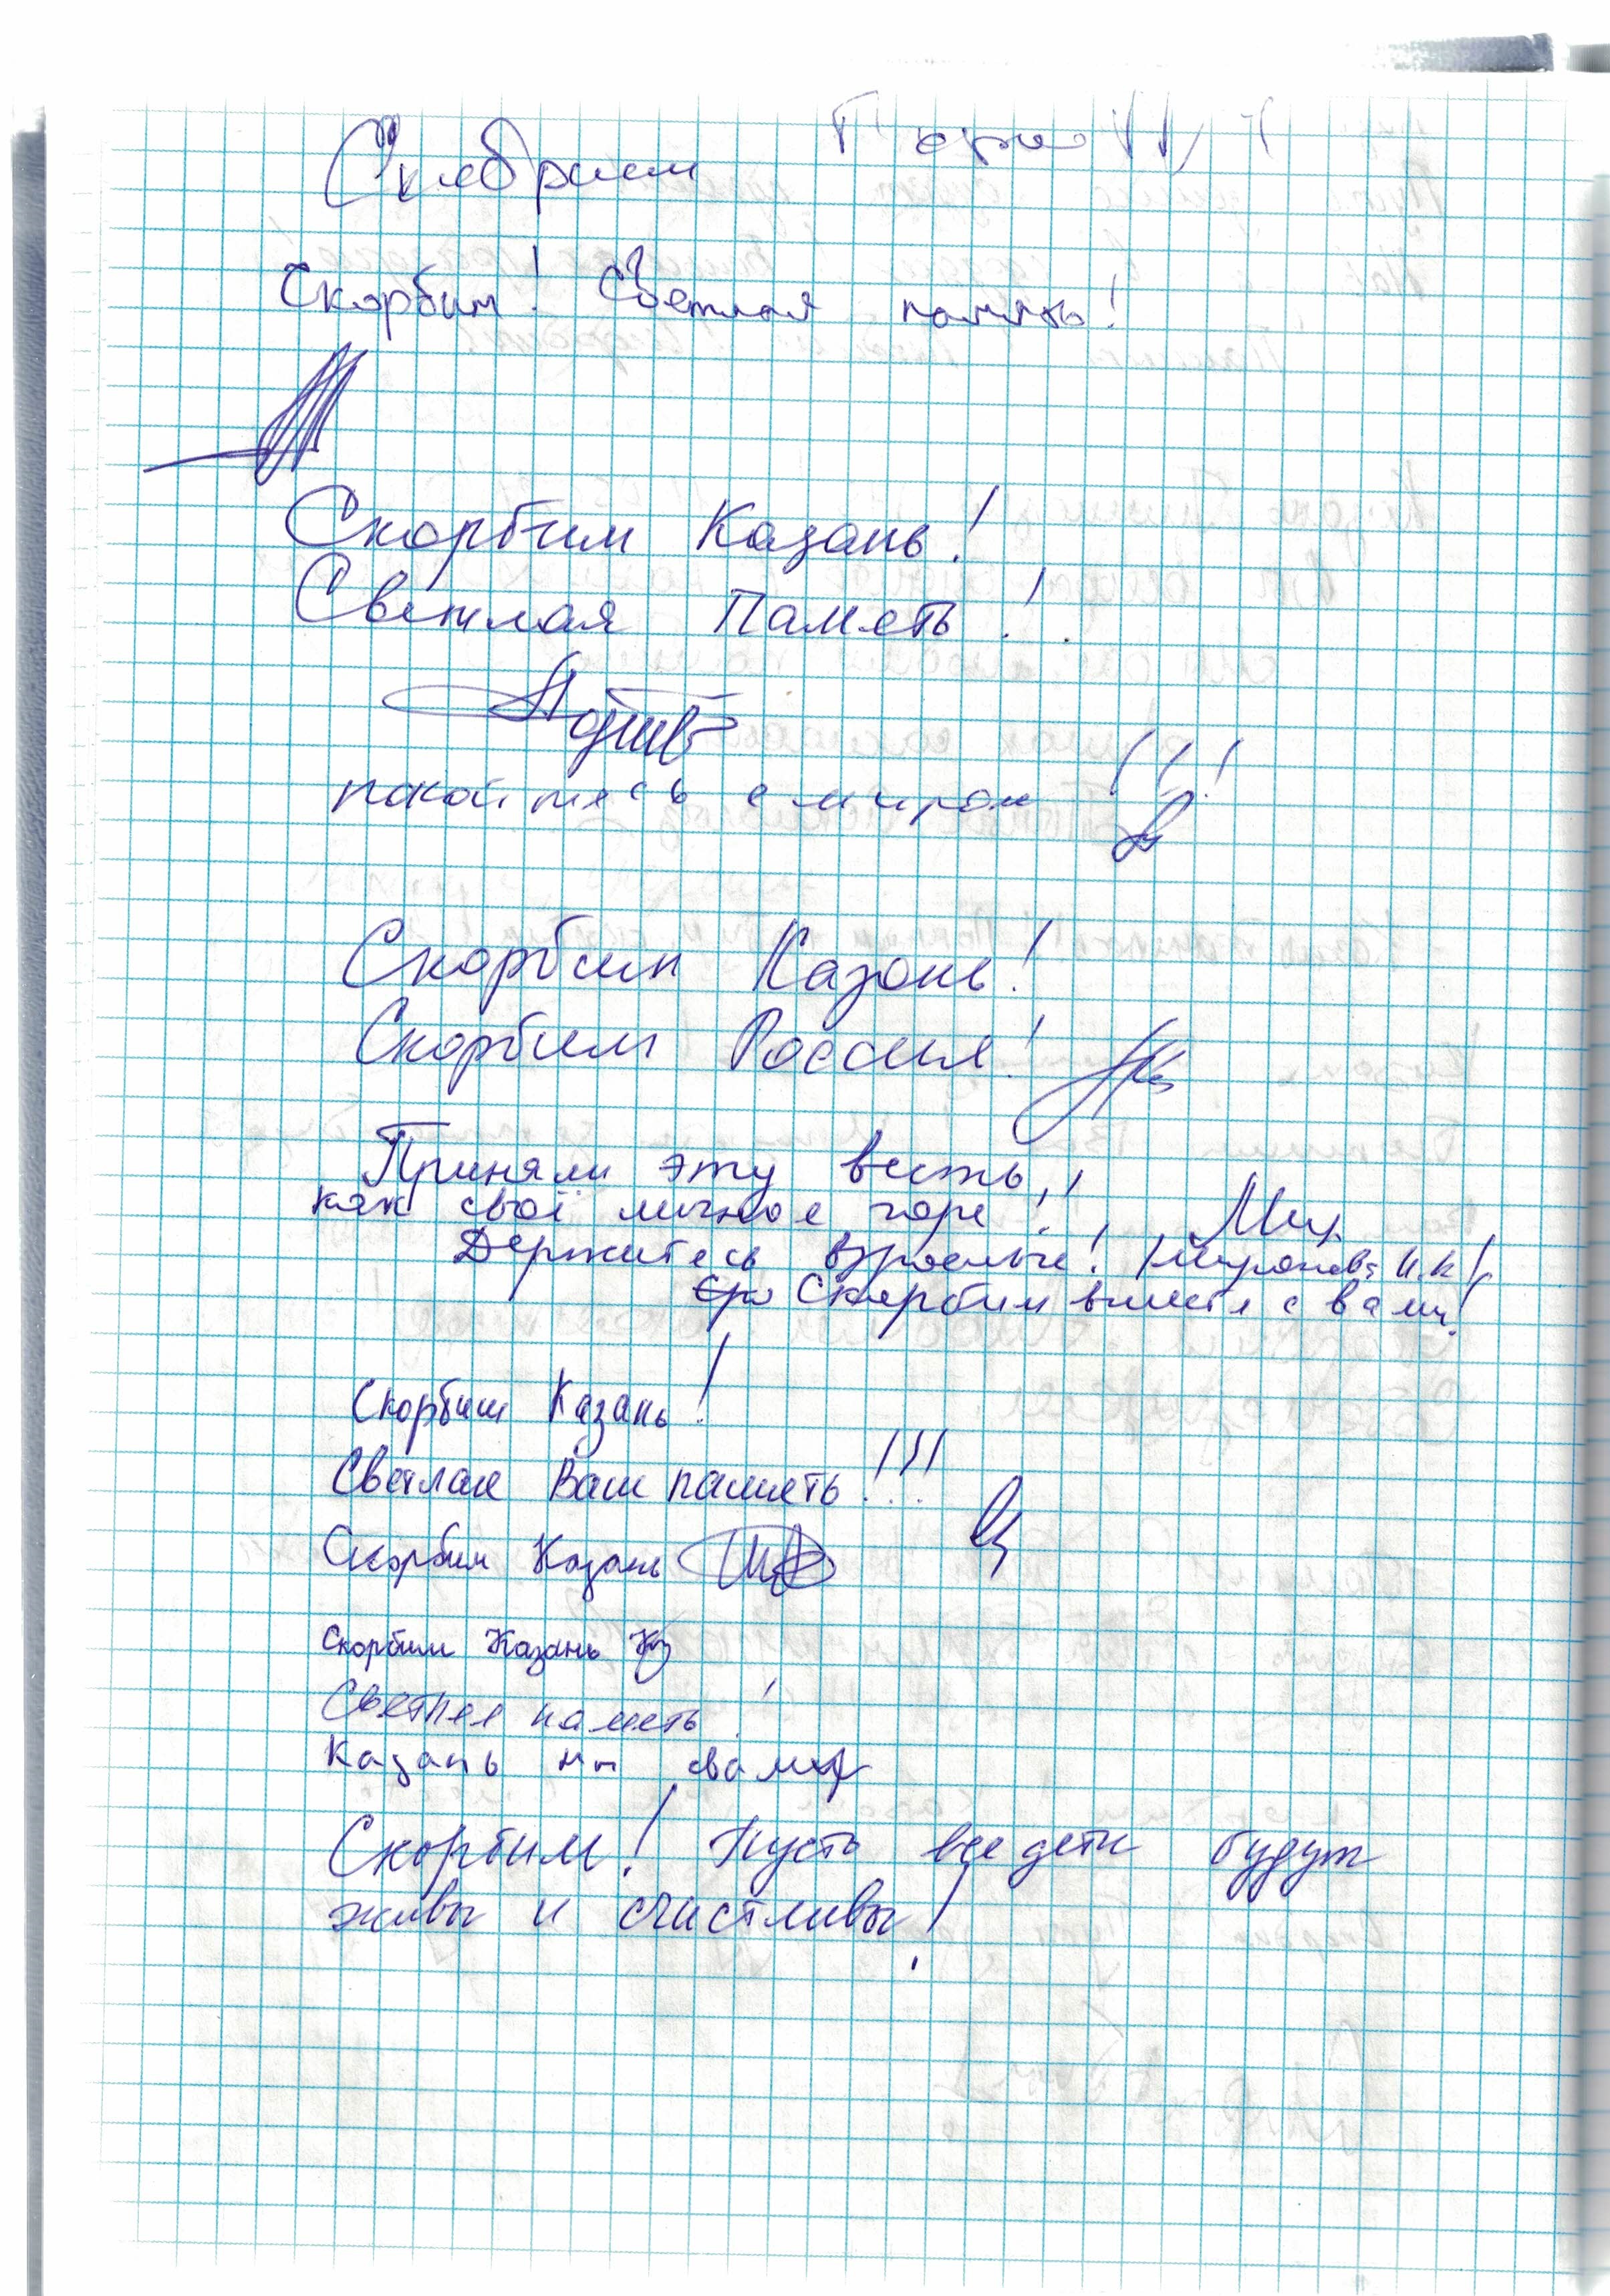 Скорбим
Скорбим! Светлая память!
Скорбим Казань!
Светлая Память!
покойтесь с миром !!!
Скорбим Казань!
Скорбим Россия!
Приняли эту весть,
как своё личное горе!
Держитесь взрослые! /Миронова И.К/
Скорбим вместе с вами!
Скорбим Казань!
Светлая Ваш память!!!
Скорбим Казань
Скорбим Казань
Светлая память!
Казань мы с вами
Скорбим! Пусть все дети будут
живы и счастливы!